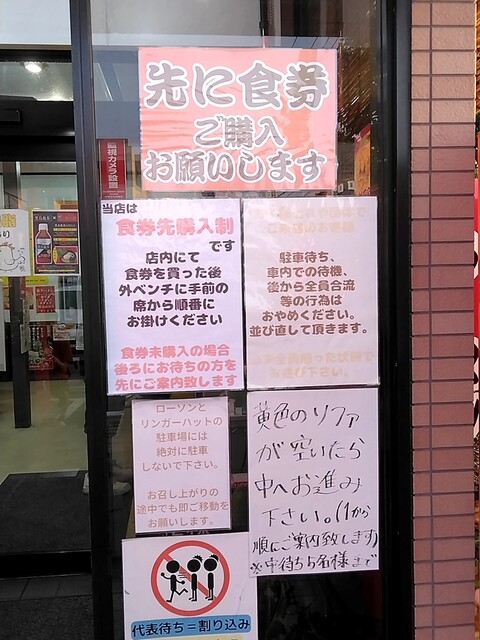 先に食券
ご購入
お願いします
監視カメラ設置
当店は
食券先購入制
です
店内にて
食券を買った後
外ベンチに手前の
席から順番に
お掛けください
食券未購入の場合
後ろにお待ちの方を
先にご案内致します
駐車待ち、
車内での待機、
後から全員合流
等の行為は
おやめください。
並び直して頂きます。
ローソンと
リンガーハットの
駐車場には
絶対に駐車
しないで下さい。
お召し上がりの
途中でも即ご移動を
お願いします。
黄色のソファ
が空いたら
中へお進み
下さい。(1から
順にご案内致します)
※中待ち5名様まで
代表待ち=割り込み